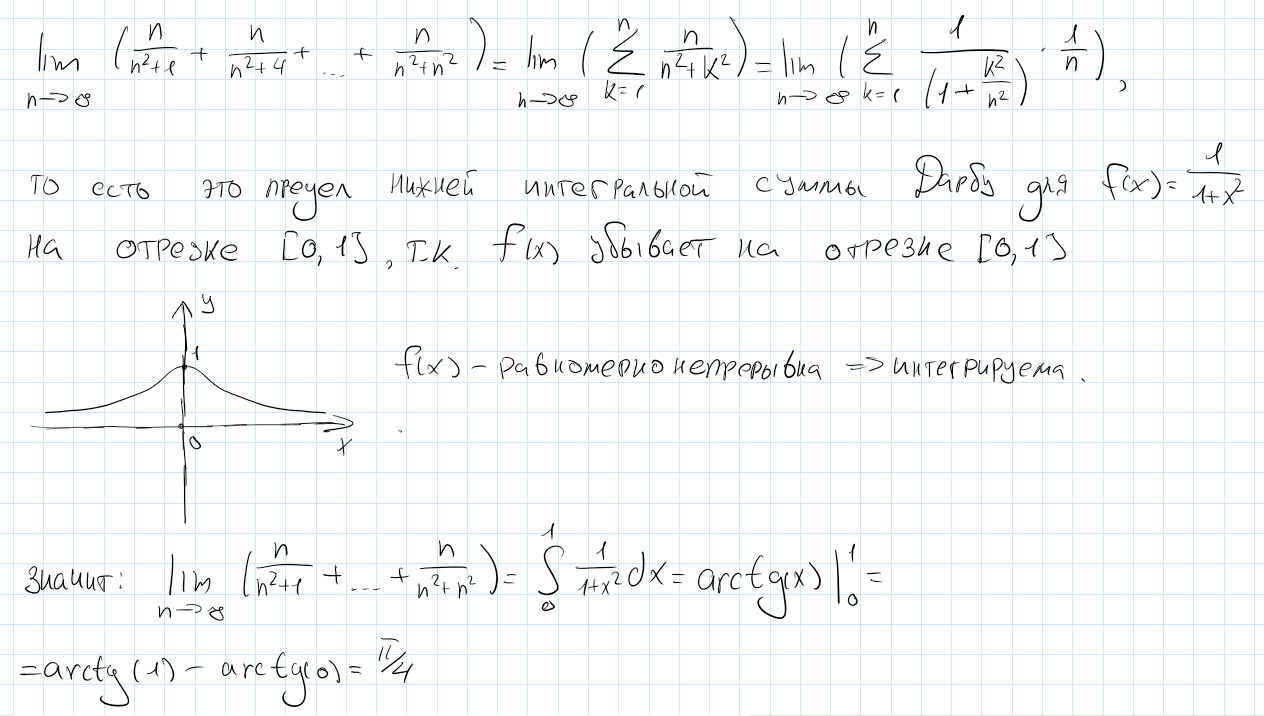 lim n→∞ (n/(n²+1) + n/(n²+4) + ... + n/(n²+n²)) = lim n→∞ (∑ k=1 n n/(n²+k²)) = lim n→∞ (∑ k=1 n 1/(1+k²/n²) · 1/n),
то есть это предел нижней интегральной суммы Дарбу для f(x)= 1/(1+x²)
на отрезке [0,1], т.к. f(x) убывает на отрезке [0,1]
y
1
f(x) – равномерно непрерывна => интегрируема.
0
x
значит: lim n→∞ (n/(n²+1) + ... + n/(n²+n²)) = ∫₀¹ 1/(1+x²) dx = arctg(x) |₀¹ =
= arctg(1) – arctg(0) = π/4